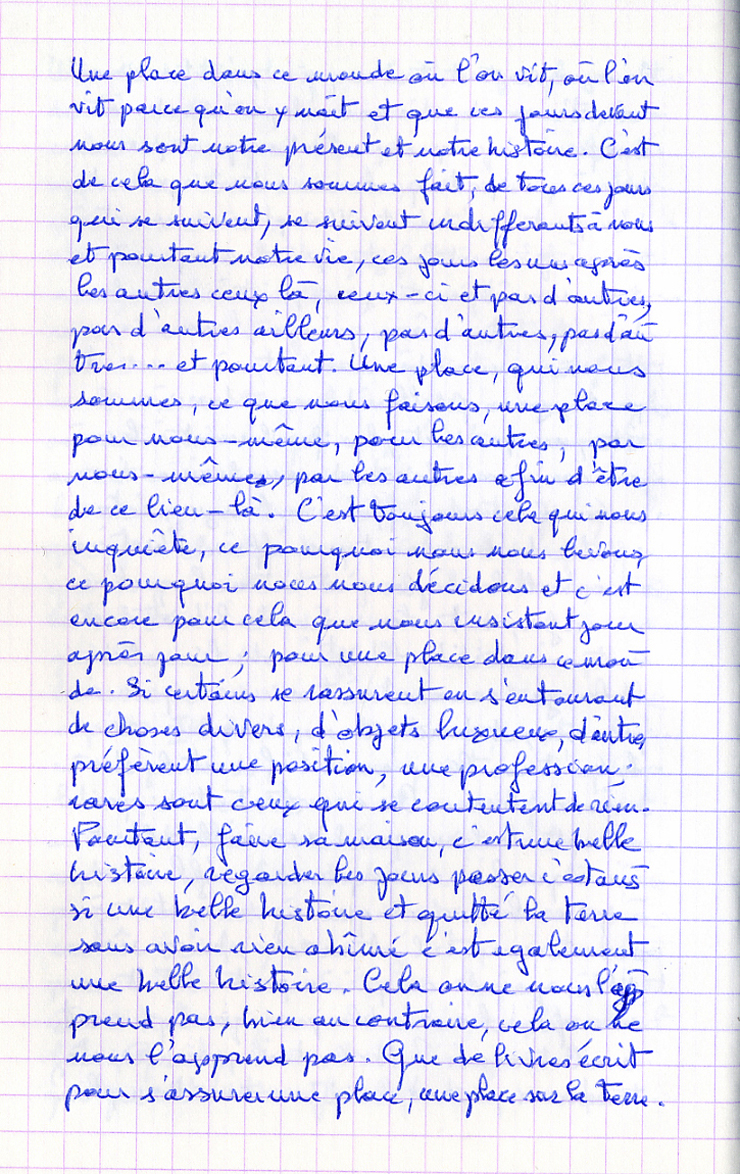 Une place dans ce monde où l'on vit, où l'on
vit parce qu'on y naît et que ces jours devant
nous sont notre présent et notre histoire. C'est
de cela que nous sommes fait, de tous ces jours
qui se suivent, se suivent indifférents à nous
et pourtant notre vie, ces jours les uns après
les autres ceux là, ceux-ci et pas d'autres,
pas d'autres ailleurs, pas d'autres, pas d'au
tres... et pourtant. Une place, qui nous
sommes, ce que nous faisons, une place
pour nous-même, pour les autres, par
nous-mêmes, par les autres afin d'être
de ce lieu-là. C'est toujours cela qui nous
inquiète, ce pourquoi nous nous levons,
ce pourquoi nous nous décidons et c'est
encore pour cela que nous insistont jour
après jour ; pour une place dans ce mon
de. Si certains se rassurent en s'entourant
de choses divers, d'objets luxueux, d'autres
préfèrent une position, une profession,
rares sont ceux qui se contentent de rien.
Pourtant, faire sa maison, c'est une belle
histoire, regarder les jours passer c'est aus
si une belle histoire et quitté la terre
sans avoir rien abîmé c'est egalement
une belle histoire. Cela on ne nous l'ap
prend pas, bien au contraire, cela on ne
nous l'apprend pas. Que de livres écrit
pour s'assurer une place, une place sur la terre.